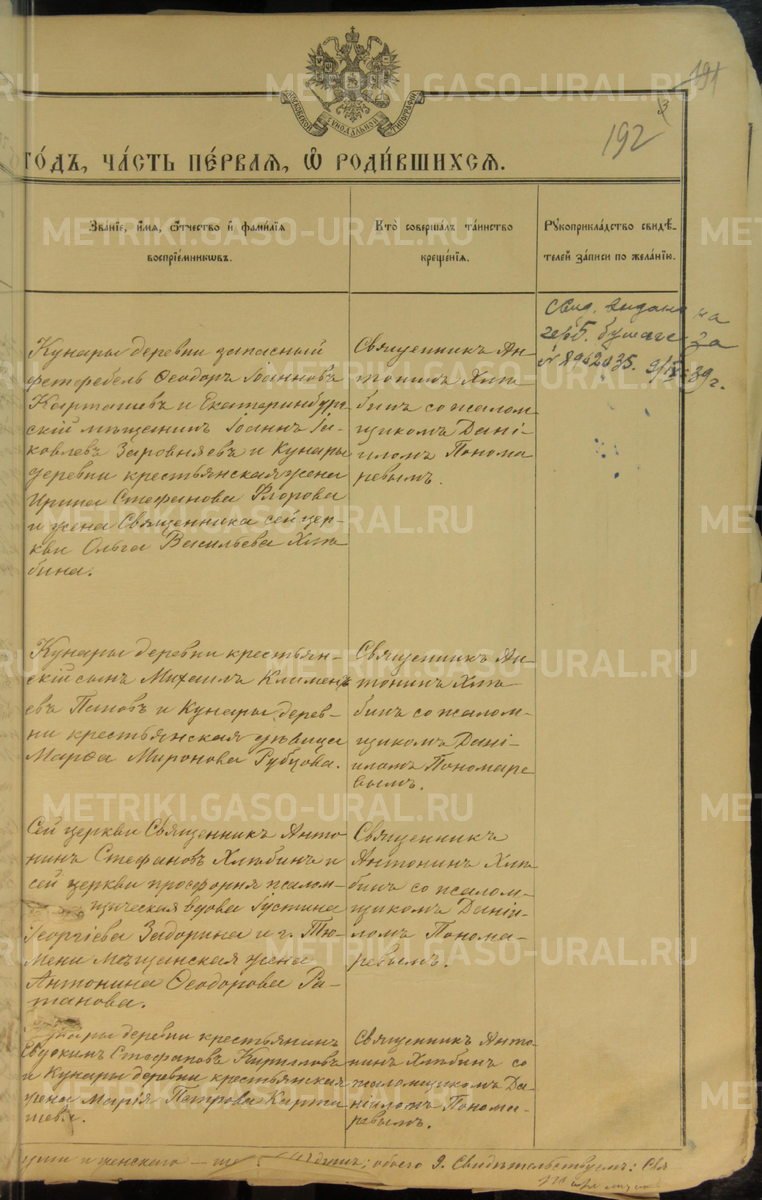 191
3
192
МОСКОВСКОЙ СѴНОДАЛЬНОЙ ТИПОГРАФІИ
ГОДЪ, ЧАСТЬ ПЕРВАЯ, Ѡ РОДИВШИХСЯ.
Званіе, имя, ѻтчество и фамилія
воспріемникѡвъ.
Кто совершалъ таинство
крещенія.
Рꙋкоприкладство свидѣ-
телей записи по желанію.
Свид. выдано на
герб. бумаге за
№ 8902035. 9/IX-39 г.
Кунары деревни запасный
фельдфебель Ѳеодоръ Іоанновъ
Карташевъ и Екатеринбург-
скій мѣщанинъ Іоаннъ Іа-
ковлевъ Заровняевъ и Кунары
деревни крестьянская жена
Ирина Стефанова Флорова
и жена Священника сей цер-
кви Ольга Васильева Хлѣ-
бина.
Священникъ Ан-
тонинъ Хлѣ-
бинъ со псалом-
щикомъ Дані-
иломъ Понома-
ревымъ.
Кунары деревни крестьян-
скій сынъ Михаилъ Климен-
евъ Поповъ и Кунары дерев-
ни крестьянская дѣвица
Марѳа Миронова Рубцова.
Священникъ Ан-
тонинъ Хлѣ-
бинъ со псалом-
щикомъ Дані-
иломъ Пономаре-
вымъ.
Сей церкви Священникъ Анто-
нинъ Стефановъ Хлѣбинъ и
сей церкви просфорня псалом-
щическая вдова Іустина
Георгіева Задорина и г. Тю-
мени мѣщанская жена
Антонина Ѳеодорова Ра-
танова.
Священникъ
Антонинъ Хлѣ-
бинъ со псалом-
щикомъ Даніи-
ломъ Понома-
ревымъ.
Кунары деревни крестьянинъ
Евдокимъ Стефановъ Кирилловъ
и Кунары деревни крестьянская
жена Марія Петрова Карта-
шева.
Священникъ Анто-
нинъ Хлѣбинъ со
псаломщикомъ Да-
ніиломъ Понома-
ревымъ.
и женского обоего 9. Свидѣтельствуемъ: Свя
METRIKI.GASO-URAL.RU